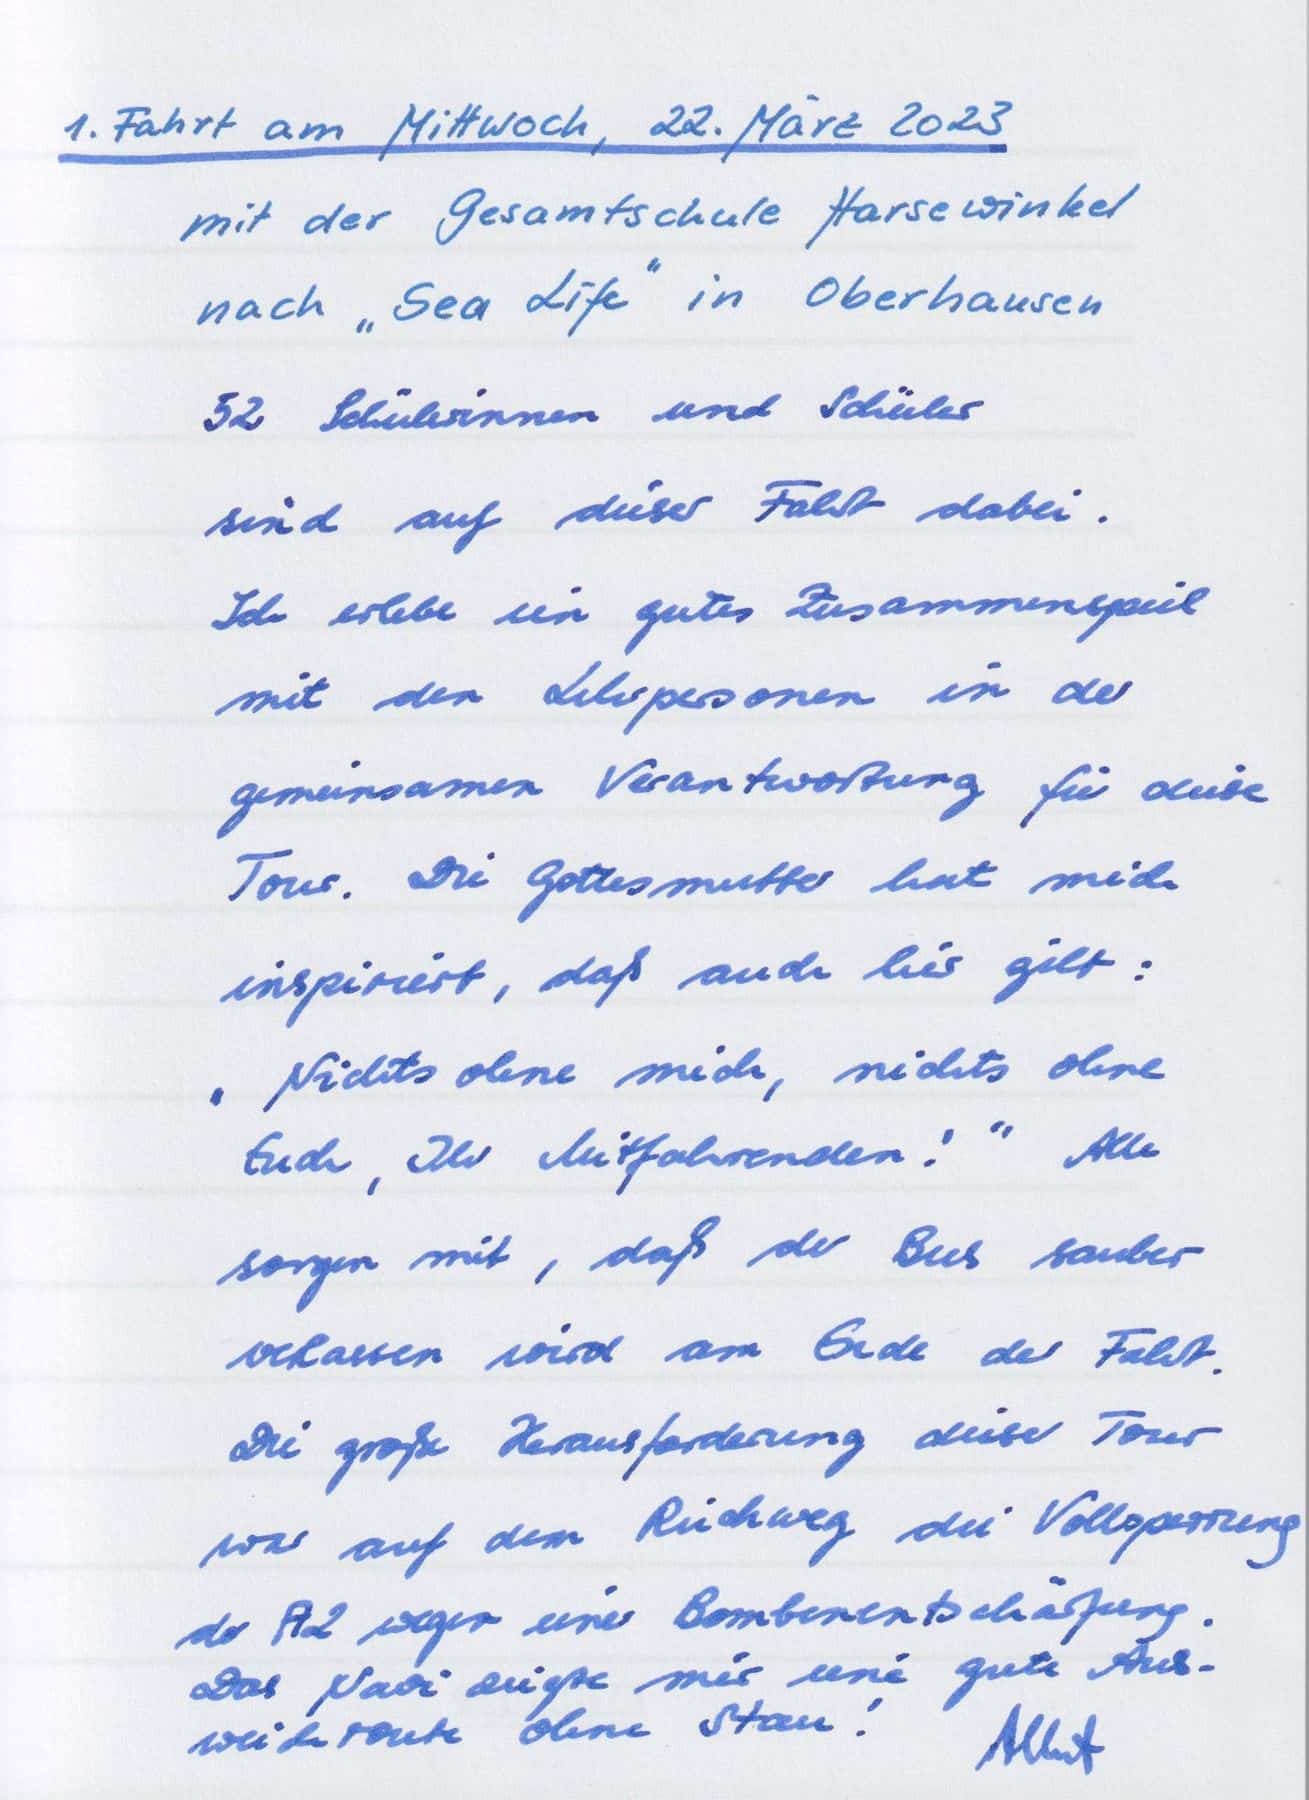 1. Fahrt am Mittwoch, 22. März 2023
mit der Gesamtschule Harsewinkel
nach „Sea Life" in Oberhausen
52 Schülerinnen und Schüler
sind auf dieser Fahrt dabei.
Ich erlebe ein gutes Zusammenspiel
mit den Lehrpersonen in der
gemeinsamen Verantwortung für diese
Tour. Die Gottesmutter hat mich
inspiriert, daß auch hier gilt:
„Nichts ohne mich, nichts ohne
Euch, Ihr Mitfahrenden!" Alle
sorgen mit, daß der Bus sauber
verlassen wird am Ende der Fahrt.
Die große Herausforderung dieser Tour
war auf dem Rückweg die Vollsperrung
der A2 wegen einer Bombenentschärfung.
Das Navi zeigte mir eine gute Aus-
weichroute ohne Stau! Albert